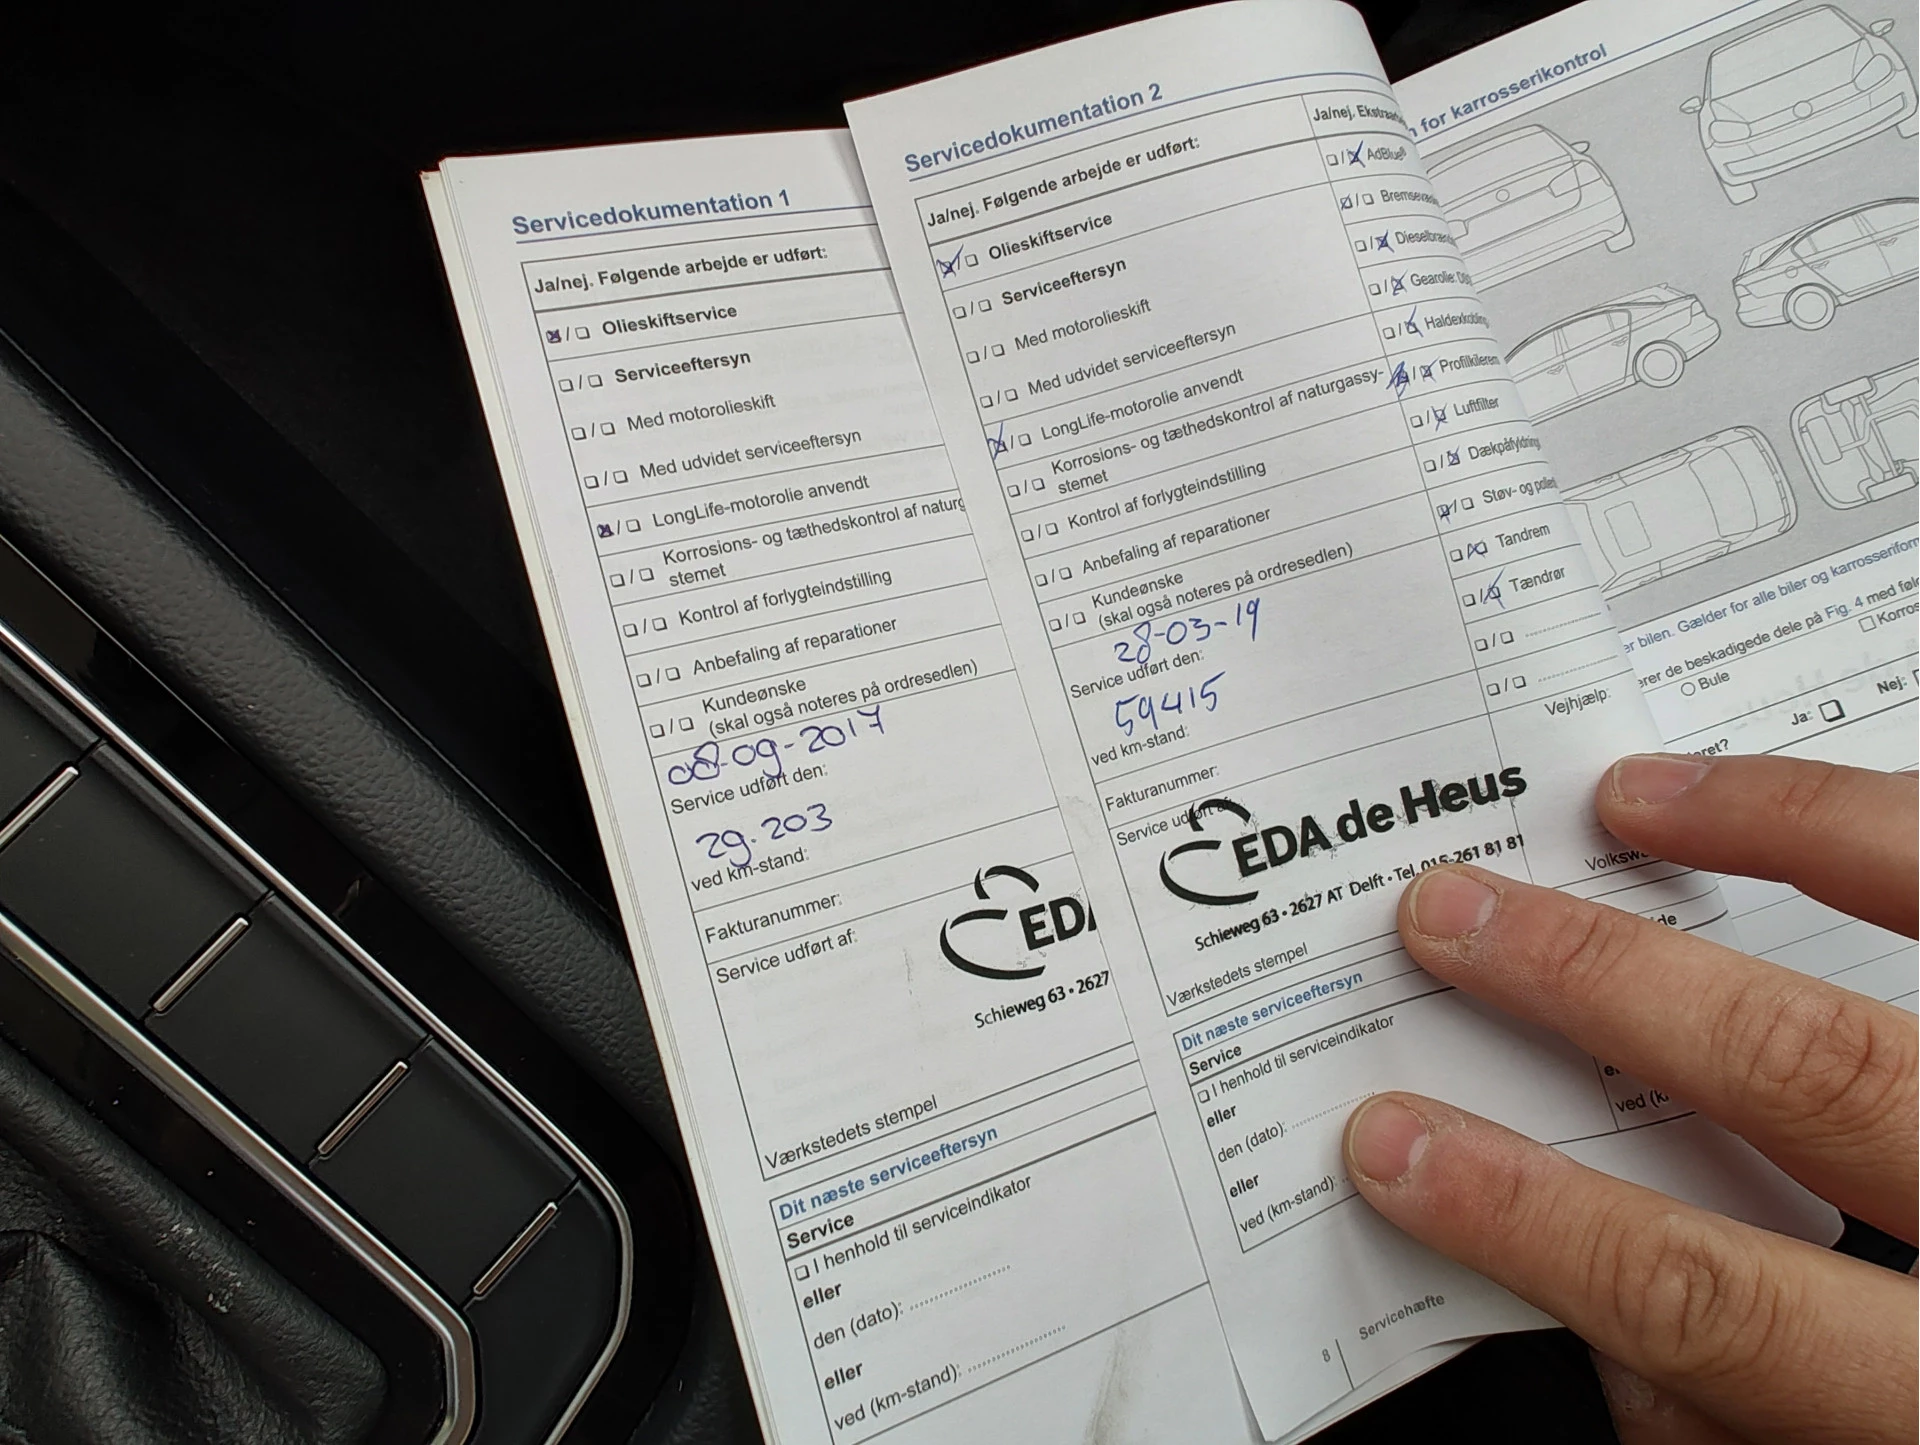 Servicedokumentation 1
Ja/nej. Følgende arbejde er udført:
Olieskiftservice
Serviceeftersyn
Med motorolieskift
Med udvidet serviceeftersyn
LongLife-motorolie anvendt
Korrosions- og tæthedskontrol af naturg
stemet
Kontrol af forlygteindstilling
Anbefaling af reparationer
Kundeønske
(skal også noteres på ordresedlen)
08-09-2017
Service udført den:
29.203
ved km-stand:
Fakturanummer:
Service udført af:
EDA
Schieweg 63 • 2627
Værkstedets stempel
Dit næste serviceeftersyn
Service
I henhold til serviceindikator
eller
den (dato):
eller
ved (km-stand):
Servicedokumentation 2
Ja/nej. Følgende arbejde er udført:
Olieskiftservice
Serviceeftersyn
Med motorolieskift
Med udvidet serviceeftersyn
LongLife-motorolie anvendt
Korrosions- og tæthedskontrol af naturgassy-
stemet
Kontrol af forlygteindstilling
Anbefaling af reparationer
Kundeønske
(skal også noteres på ordresedlen)
28-03-19
Service udført den:
59415
ved km-stand:
Fakturanummer:
Service udført af:
EDA de Heus
Schieweg 63 • 2627 AT Delft • Tel. 015-261 81 81
Værkstedets stempel
Dit næste serviceeftersyn
Service
I henhold til serviceindikator
eller
den (dato):
eller
ved (km-stand):
8 Servicehæfte
Ja/nej. Ekstraar
AdBlue®
Bremsevæ
Dieselbræn
Gearolie: DSG
Haldexkobling
Profilkilerem
Luftfilter
Dækpåfyldning
Støv- og polle
Tandrem
Tændrør
Vejhjælp:
Volksw
for karrosserikontrol
er bilen. Gælder for alle biler og karrosseriform
erer de beskadigede dele på Fig. 4 med føl
Bule
Korros
Ja:
Nej:
eret?
de
ved (k